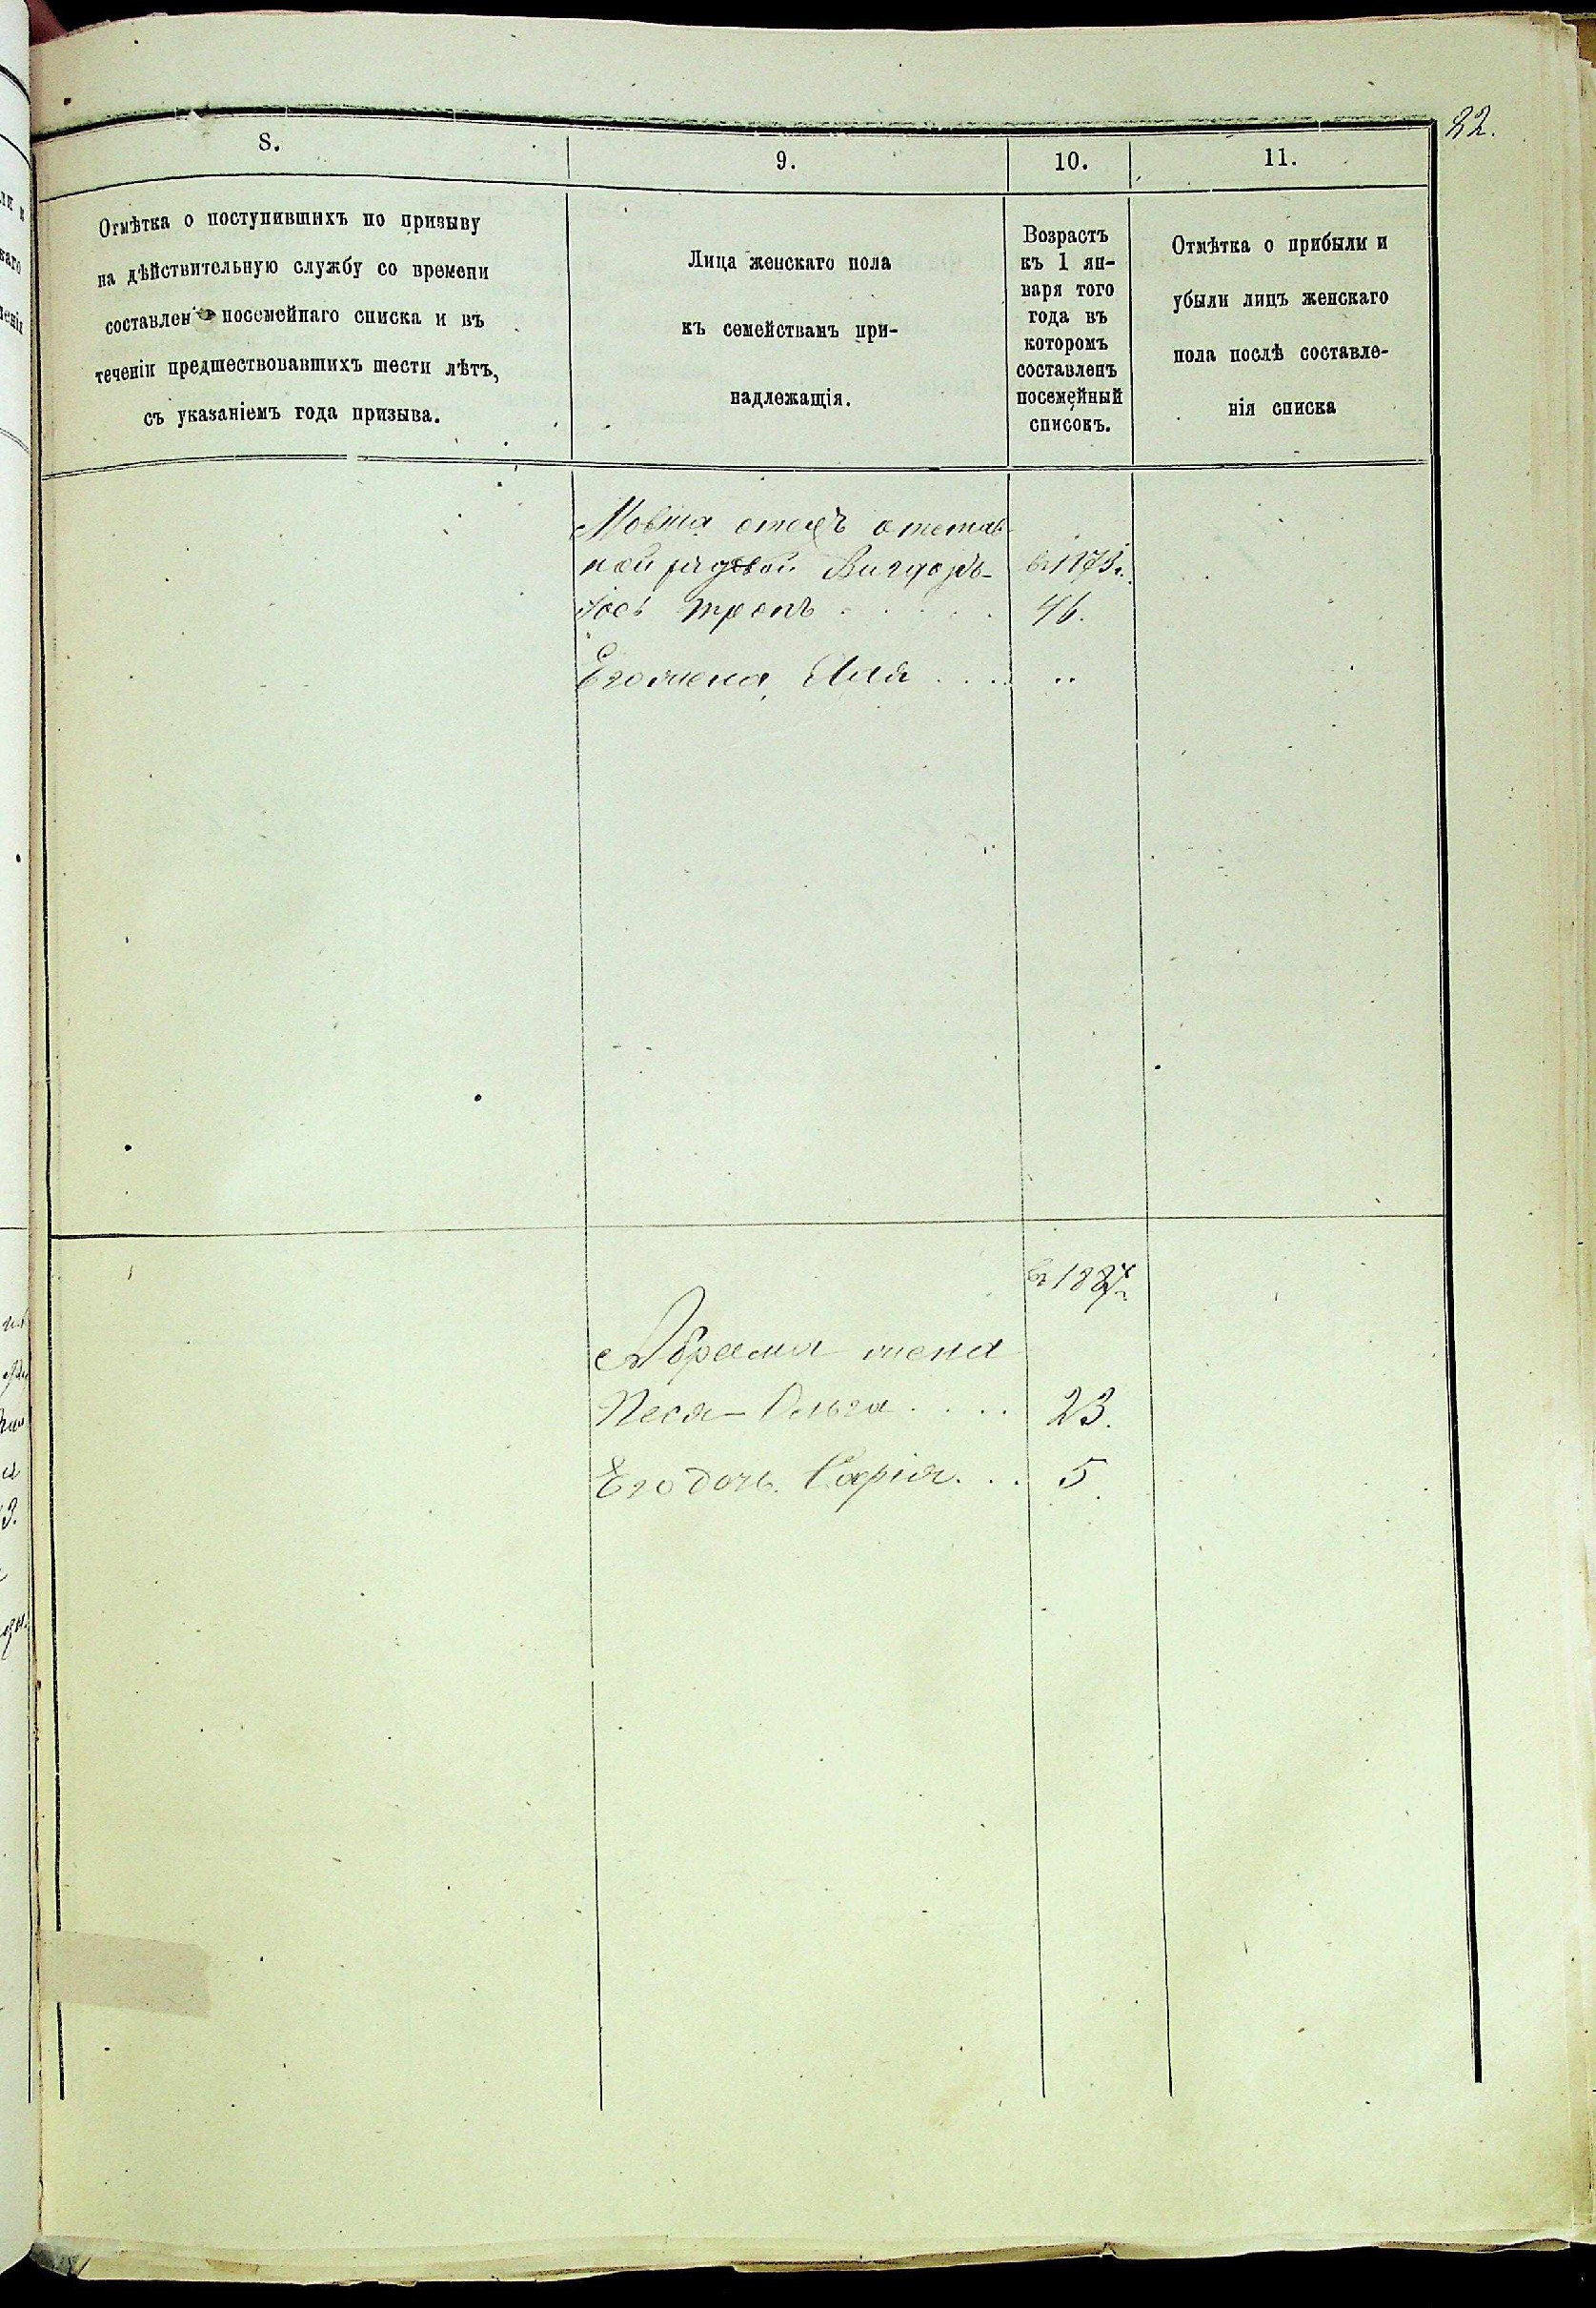 22.
8.
9.
10.
11.
Отмѣтка о поступившихъ по призыву
на дѣйствительную службу со времени
составлен посемейнаго списка и въ
теченіи предшествовавшихъ шести лѣтъ,
съ указаніемъ года призыва.
Лица женскаго пола
къ семействамъ при-
надлежащія.
Возрастъ
къ 1 ян-
варя того
года въ
которомъ
составленъ
посемейный
списокъ.
Отмѣтка о прибыли и
убыли лицъ женскаго
пола послѣ составле-
нія списка
Мовша отецъ отстав-
ной рядовой Вигдоръ-
въ 1873 г.
46.
Его жена
въ 1887 г.
Абрама жена
Песя-Ольга . . . . 23.
Его дочь Софія . . . 5.